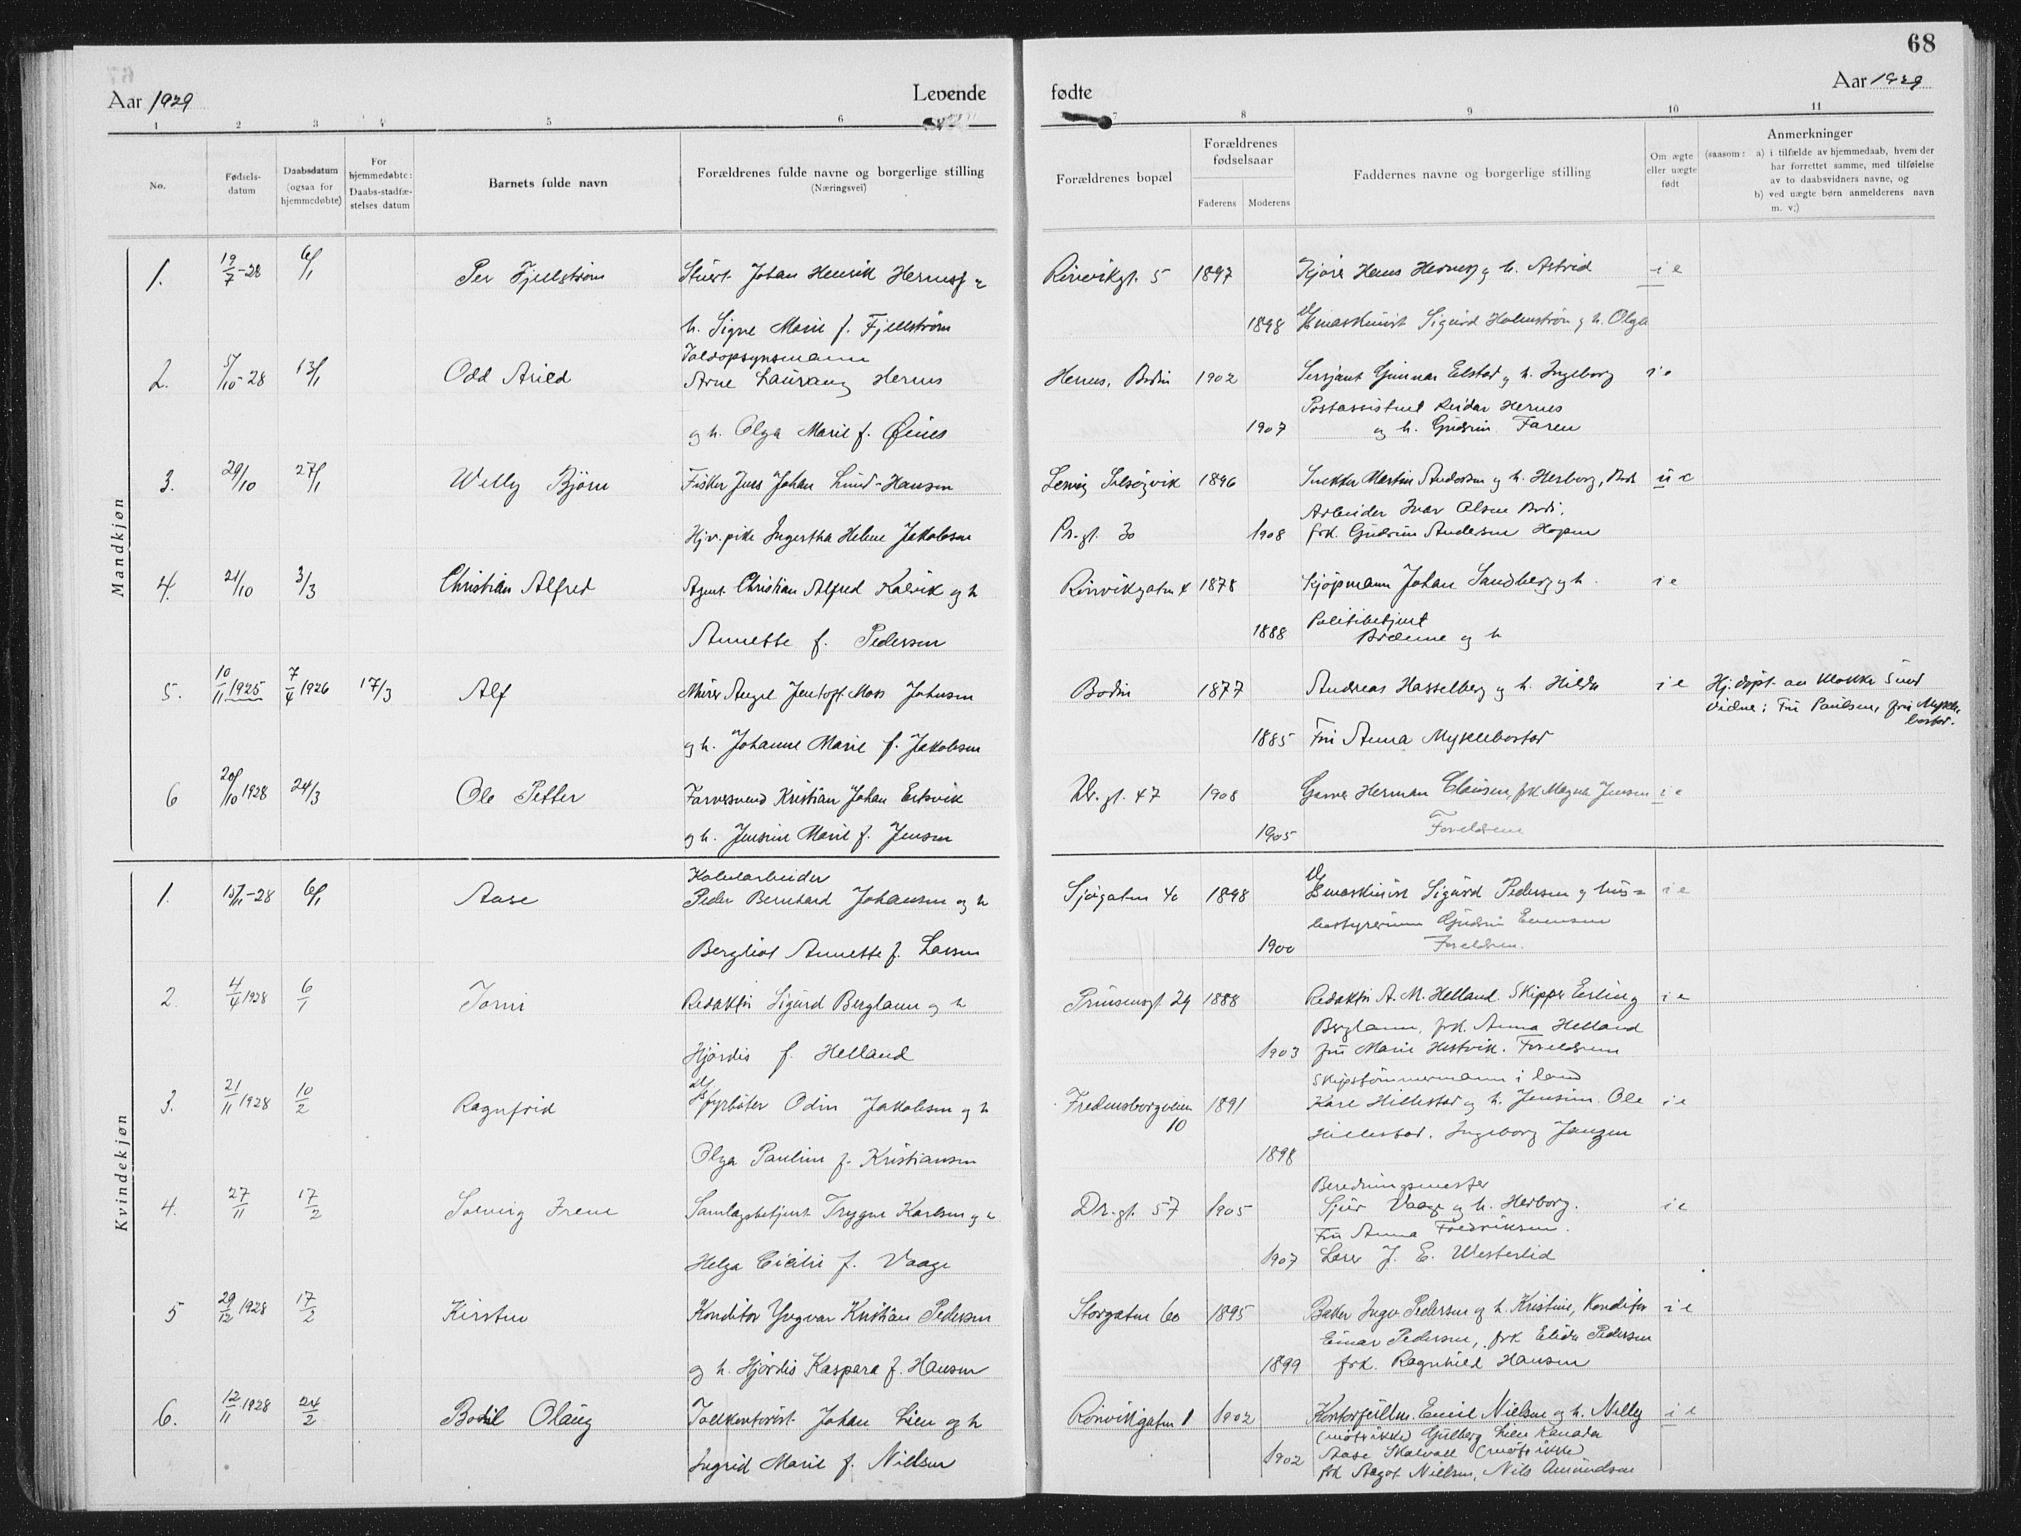 68
Aar 1929 Levende fødte Aar 1929
1 2 3 4 5 6 7 8 9 10 11
No.
Fødsels-
datum
Daabsdatum
(ogsaa for
hjemmedøbte)
For
hjemmedøbte:
Daabs-stadfæ-
stelses datum
Barnets fulde navn
Forældrenes fulde navne og borgerlige stilling
(Næringsvei)
Forældrenes bopæl
Forældrenes
fødselsaar
Faderens Moderens
Faddernes navne og borgerlige stilling
Om ægte
eller uægte
født
Anmerkninger
(saasom: a) i tilfælde av hjemmedaab, hvem der
har forrettet samme, med tilføielse
av to daabsvidners navne, og
b) ved uægte børn anmelderens navn
m. v;)
Mandkjøn
1. 19/7-28 6/1 Per Fjellstrøm Stuert Johan Henrik Hernes og Rønvikgt. 5 1897 Hans Hernes og h. Astrid i e
h. Signe Marie f. Fjellstrøm 1898 maskinist Sigurd Holmstrøm og h. Olga
Toldopsynsmann
2. 5/10-28 13/1 Odd Arild Arne Laurang Hernes Hernes, Bodin 1902 Sersjant Gunnar Elstad og h. Ingeborg i e
Postassistent Reidar Hernes
og h. Olga Marie f. Øines 1907 og h. Gudrun Faren
3. 29/10 27/1 Willy Bjørn Fisker Jens Johan Lund-Hansen 1896 Snekker Martin Andersen og h. Herborg, Bodø u e
Arbeider Ivar Olsen Bodø.
Hjv.pike Ingertha Helene Jakobsen Pr.gt. 30 1908 frk. Gudrun Andersen Hopen
4. 21/10 3/3 Christian Alfred Agent Christian Alfred Kalvik og h Rønvikgaten 4 1878 Kjøpmann Johan Sandberg og h. i e
Politibetjent
Annette f. Pedersen 1888 og h
5. 10/11 1925 7/4 1926 17/3 Alf Murer Angel Jentoft Moss Johnsen Bodin 1877 Andreas Hasselberg og h. Hilda i e Hj.døpt av klokker Sund
Vidne: Fru Paulsen, fru Mykle-
bostad.
og h. Johanne Marie f. Jakobsen 1885 Fru Anna Myklebostad
6 20/10 1928 24/3 Ole Petter Farversvend Kristian Johan Ertsvik Dr. gt. 47 1908 Garver Herman Clausen, frk Magna Jensen i e
og h. Jensine Marie f. Jensen 1905 Foreldrene
Kvindekjøn
Kabelarbeider
1. 15/11-28 6/1 Aase Peder Bernhard Johansen og h Sjøgaten 40 1898 maskinist Sigurd Pedersen og hus- i e
bestyrerinne Gudrun Evensen
Bergliot Annette f. Larsen 1900 Foreldrene.
2. 4/4 1928 6/1 Torni Redaktør Sigurd Berglann og h Prinsensgt. 29 1888 Redaktør A. M. Helland. Skipper Erling i e
Berglann, frk. Anna Helland
Hjørdis f. Helland 1903 fru Marie Hestvik. Foreldrene
Skipstømmermann i land
3. 21/11 1928 10/2 Ragnfrid fyrbøter Odin Jakobsen og h Fredensborgveien 10 1891 Kare Hillestad og h. Jensine. Ole i e
Hillestad. Ingeborg Jangen
Olga Pauline f. Kristiansen 1898
Beredningsmester
4. 27/11 17/2 Solveig Irene Samlagsbetjent Trygve Karlsen og h Dr.gt. 57 1905 Sjur Vaage og h. Herborg. i e
Fru Anna Fredriksen.
Helga Cicilie f. Vaage 1907 Lærer J. E. Westerlid
5 29/12 1928 17/2 Kirsten Konditor Yngvar Kristian Pedersen Storgaten 60 1895 Baker Ingv Pedersen og h. Kristine, Konditor i e
Einar Pedersen, frk Elida Pedersen
og h. Hjørdis Kaspara f. Hansen 1899 frk. Ragnhild Hansen
6. 12/11 1928 24/2 Bodil Olaug Tollkontorist Johan Lien og h Rønvikgaten 1 1902 Kontorfullm. Emil Nielsen og h. Nelly i e
(møtt ikke) Gulberg Lien Kanada
Ingrid Marie f. Nielsen 1902 Aase Skalvoll (møtt ikke)
frk Aagot Nielsen, Nils Amundsen